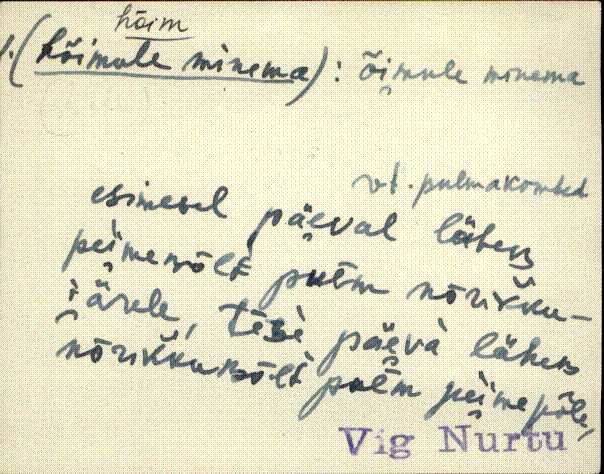 hõim
1. (hõimule minema): õi̯mule minema
vt. pulmakombed
esimesel päe̯val lähe̬b
pei̯mewõl̄t pul̄m nõrikku-
i̯ärele, tẽs̀e päe̯và lähe̬b
nõrikkuwõl̄t pul̄m pei̯me põle,
Vig Nurtu